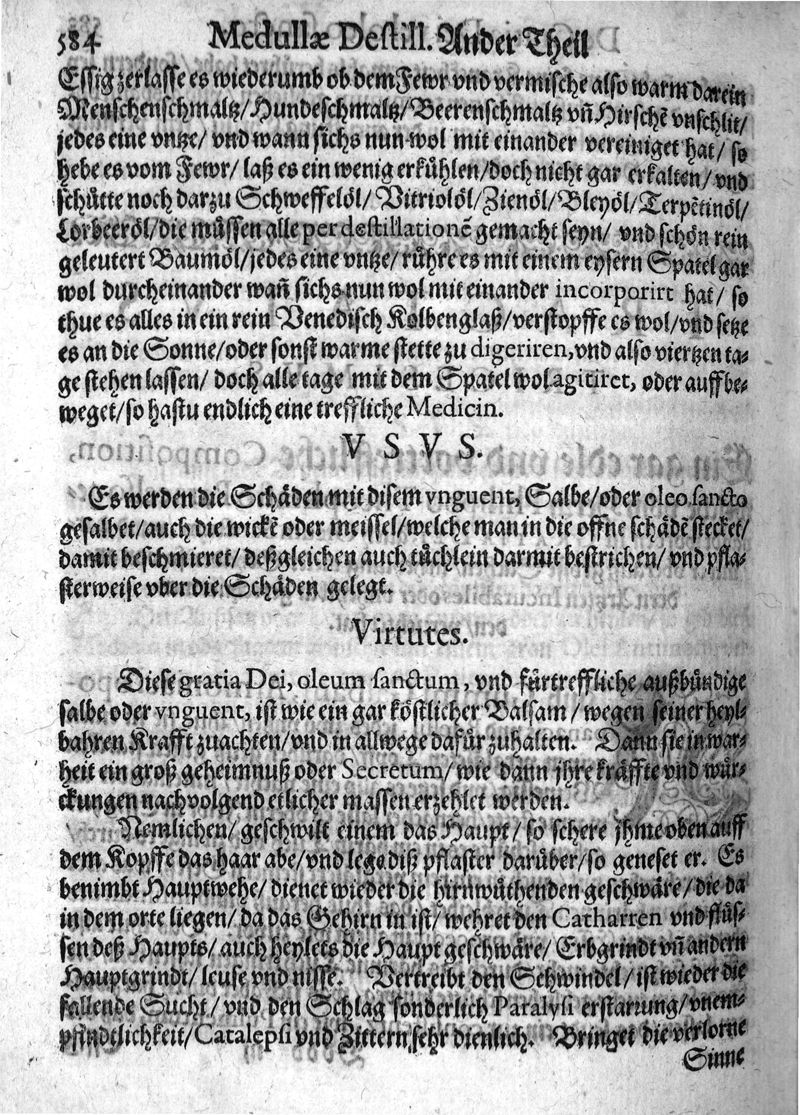 584 Medullæ Destill. Ander Theil
Essig zerlasse es wiederumb ob dem Fewr vnd vermische also warm darein
Menschenschmaltz/Hundeschmaltz/Beerenschmaltz vñ Hirschē vnschlit/
jedes eine vntze/ vnd wann sichs nun wol mit einander vereiniget hat/ so
hebe es vom Fewr/ laß es ein wenig erkühlen/doch nicht gar erkalten/vnd
schütte noch darzu Schweffelöl/ Vitriolöl/Zienöl/Bleyöl/Terpētinöl/
Lorbeeröl/die müssen alle per destillationē gemacht seyn/ vnd schön rein
geleutert Baumöl/jedes eine vntze/rühre es mit einem eysern Spatel gar
wol durcheinander wañ sichs nun wol mit einander incorporirt hat/ so
thue es alles in ein rein Venedisch Kolbenglaß/verstopffe es wol/vnd setze
es an die Sonne/oder sonst warme stette zu digeriren,vnd also viertzen ta-
ge stehen lassen/ doch alle tage mit dem Spatel wol agitiret, oder auffbe-
weget/so hastu endlich eine treffliche Medicin.
V S V S.
Es werden die Schäden mit disem vnguent, Salbe/oder oleo sancto
gesalbet/auch die wickē oder meissel/welche man in die offne schädē stecket/
damit beschmieret/ deßgleichen auch tüchlein darmit bestrichen/ vnd pfla-
sterweise vber die Schäden gelegt.
Virtutes.
Diese gratia Dei, oleum sanctum, vnd fürtreffliche außbündige
salbe oder vnguent, ist wie ein gar köstlicher Balsam/wegen seiner heyl-
bahren Krafft zuachten/vnd in allwege dafür zuhalten. Dann sie in war-
heit ein groß geheimnuß oder Secretum/ wie dann jhre kräffte vnd wür-
ckungen nachvolgend etlicher massen erzehlet werden.
Nemlichen/ geschwilt einem das Haupt/ so schere jhme oben auff
dem Kopffe das haar abe/vnd lege diß pflaster darüber/so geneset er. Es
benimbt Hauptwehe/ dienet wieder die hirnwüthenden geschwäre/die da
in dem orte liegen/ da das Gehirn in ist/ wehret den Catharren vnd flüs-
sen deß Haupts/ auch heylets die Hauptgeschwäre/ Erbgrindt vñ andern
Hauptgrindt/ leuse vnd nisse. Vertreibt den Schwindel/ ist wieder die
fallende Sucht/ vnd den Schlag sonderlich Paralysi erstarrung/vnem-
pfindtlichkeit/Catalepsi vnd Zittern sehr dienlich. Bringet die verlorne
Sinne